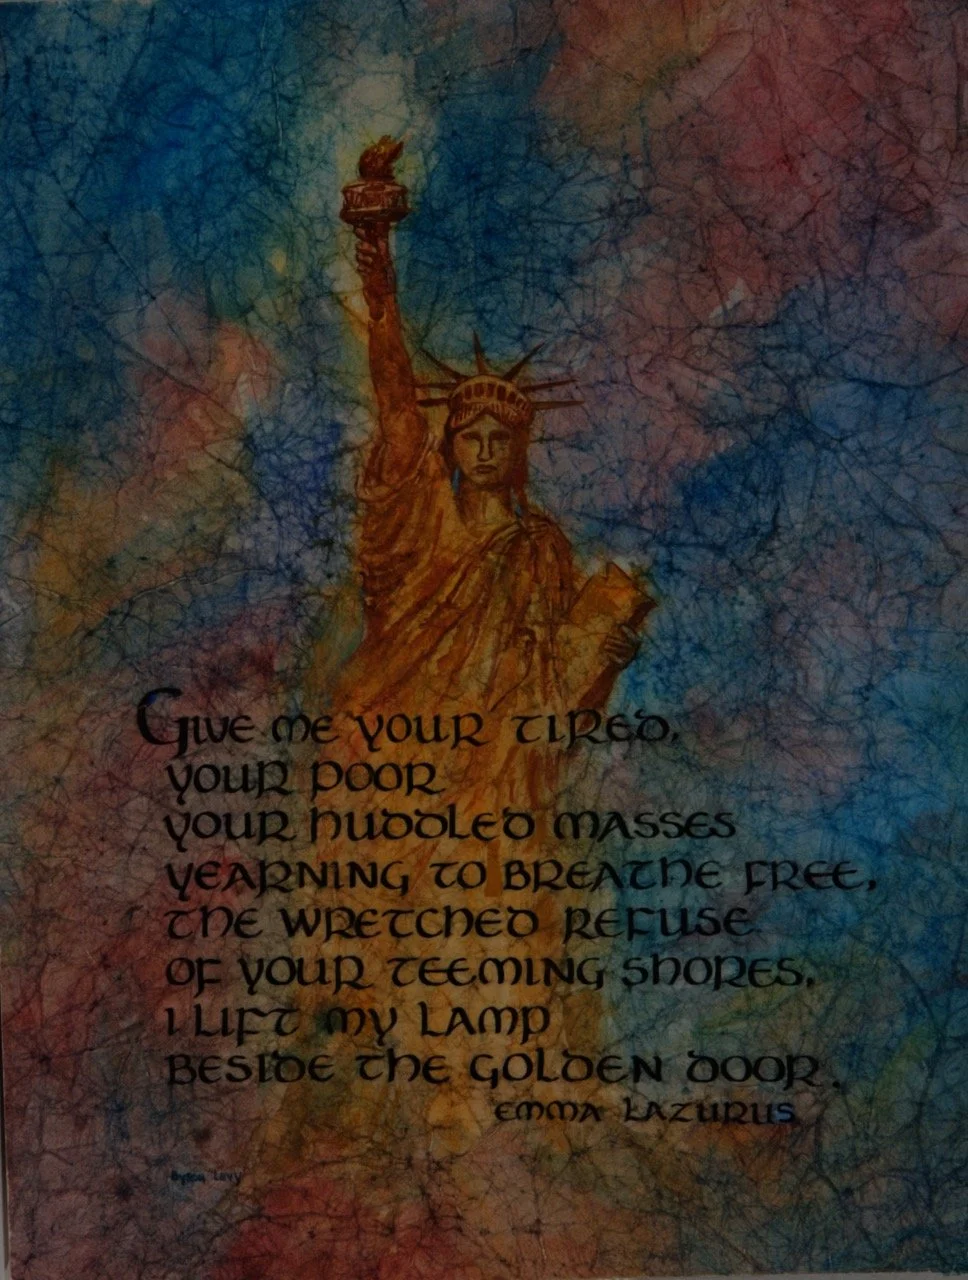 Give me your tired,
your poor
your huddled masses
yearning to breathe free,
the wretched refuse
of your teeming shores,
I lift my lamp
beside the golden door.
Emma Lazurus
Levy